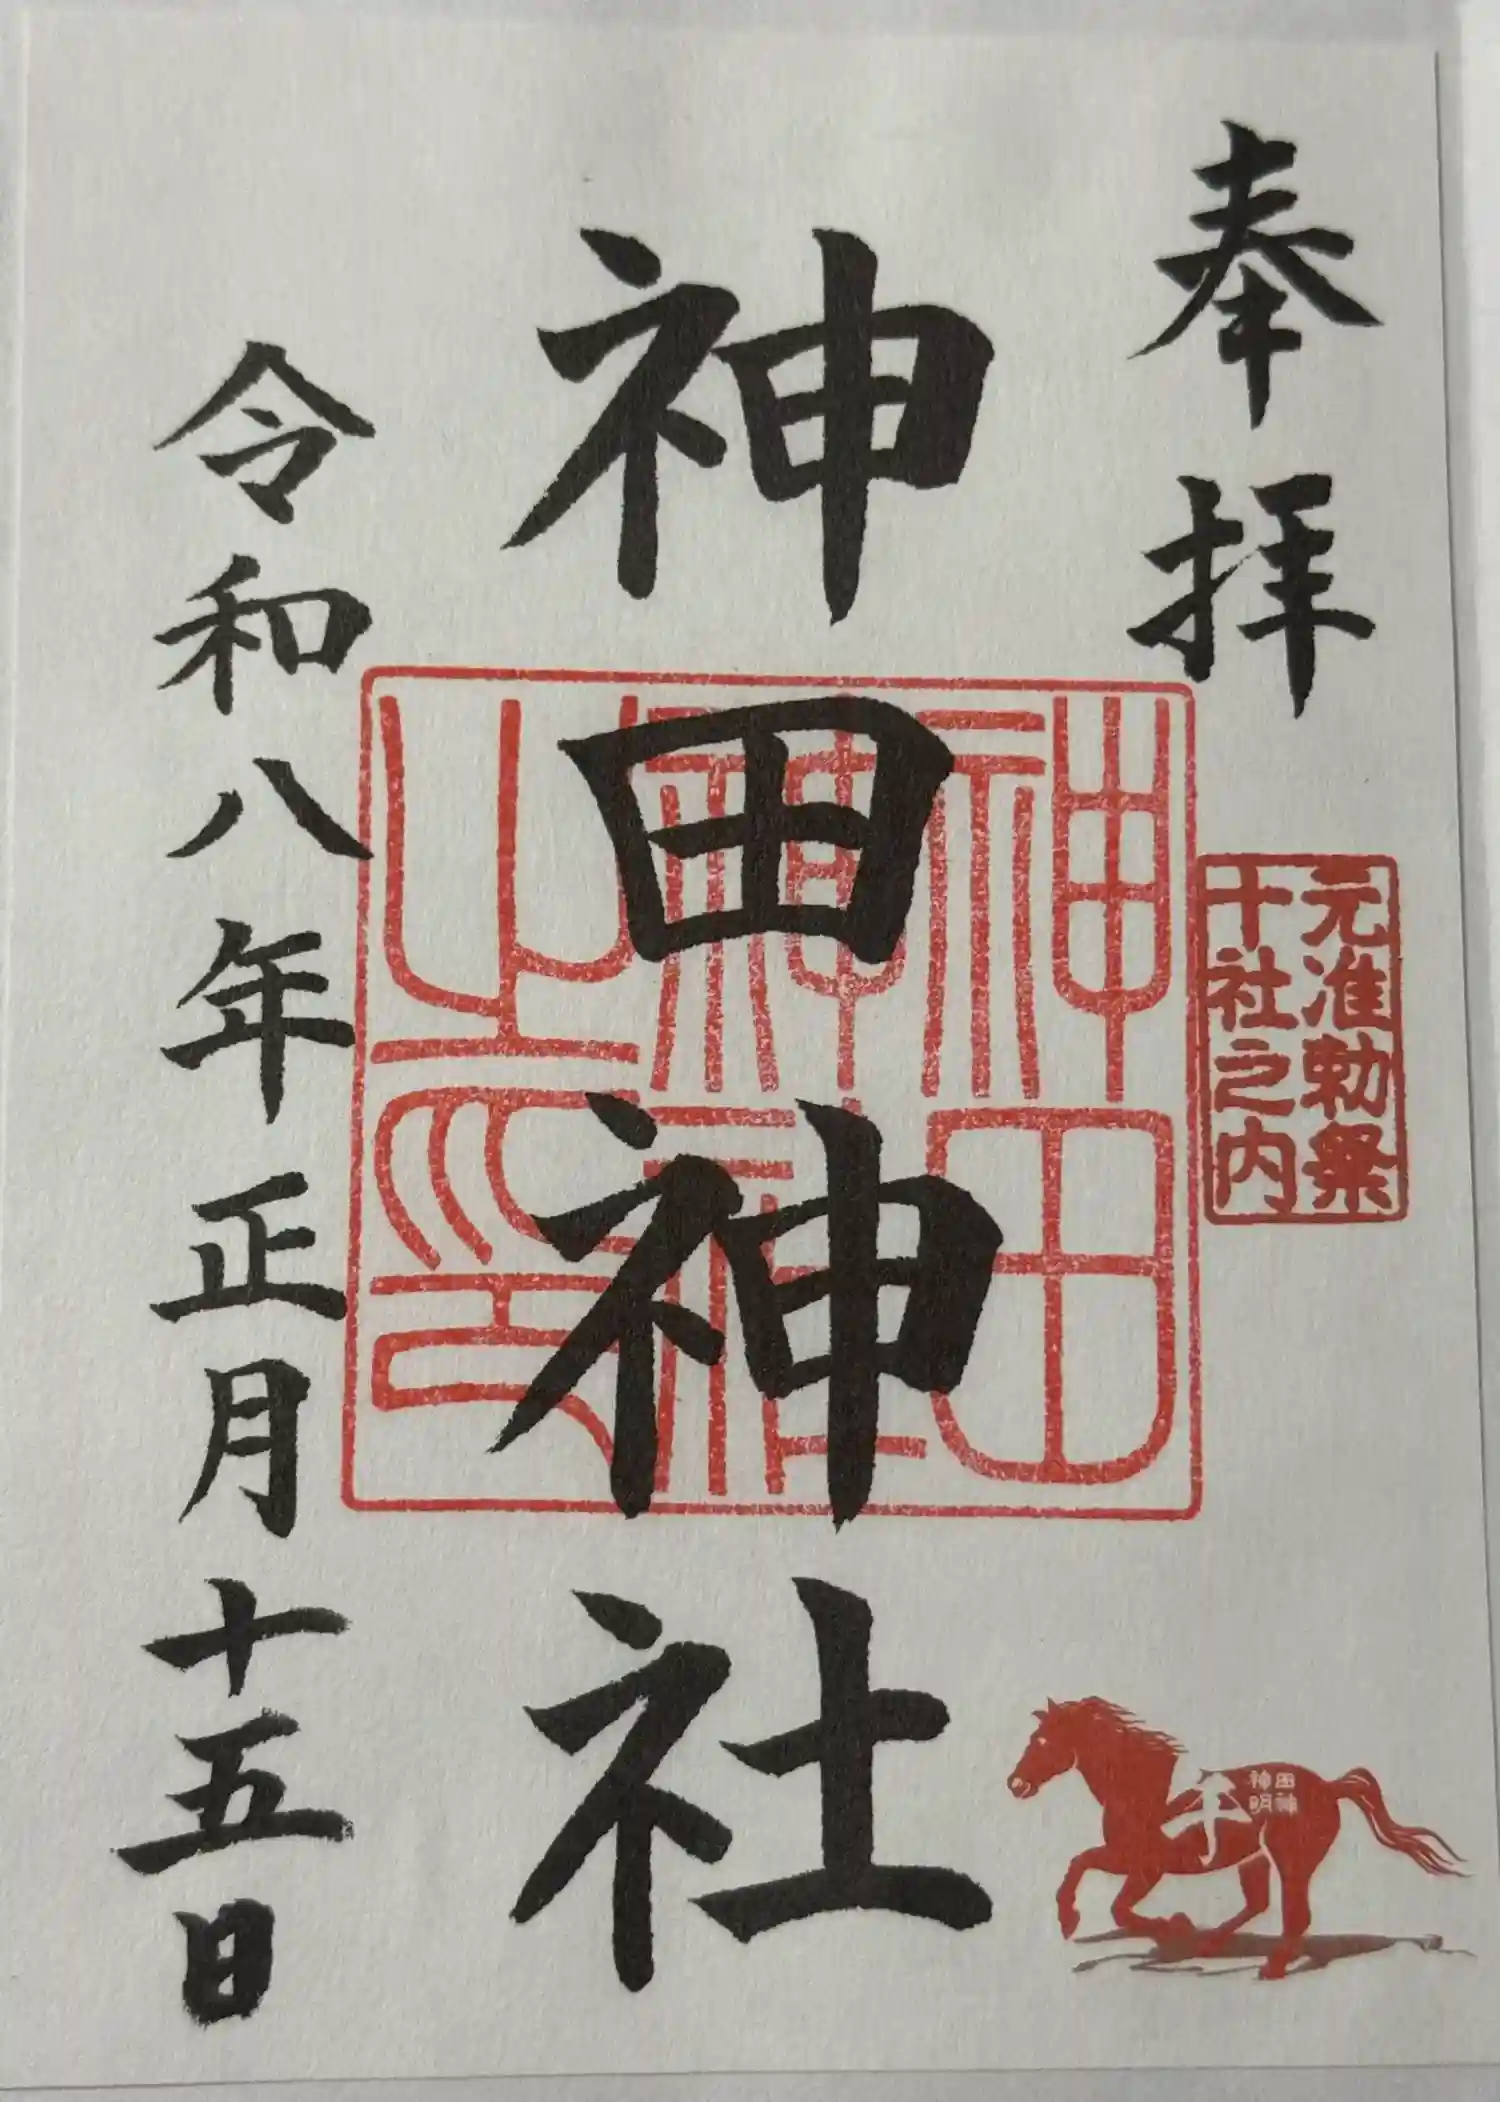 奉拝
元准勅祭
十社之内
神田神社
神田
神社
之印
令和八年正月十五日
神田
明神